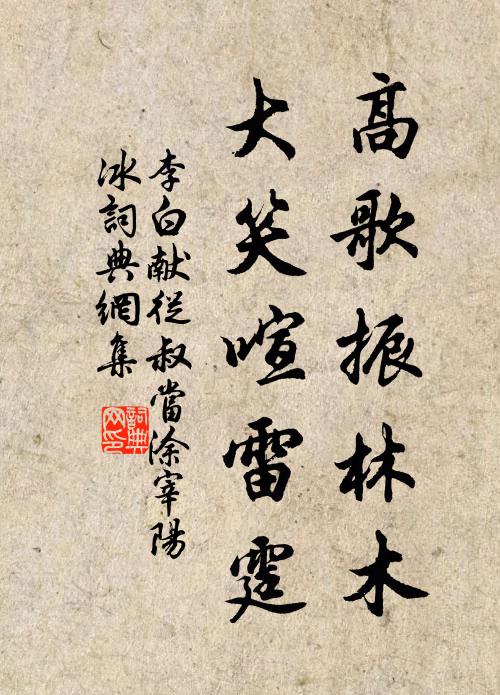 高歌振林木
大笑喧雷霆
李白献從叔當涂宰陽
冰詞典網集
詞典
网印